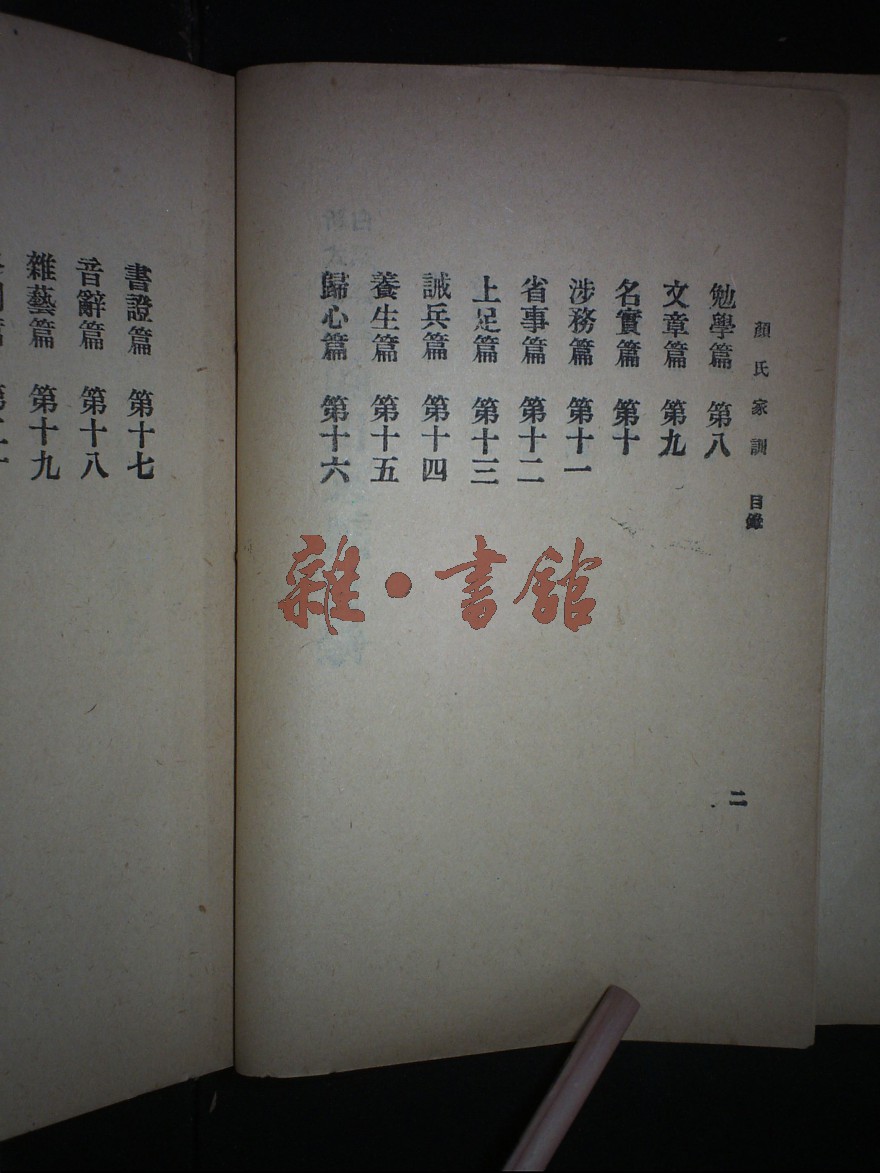 顏氏家訓 目錄
勉學篇 第八
文章篇 第九
名實篇 第十
涉務篇 第十一
省事篇 第十二
止足篇 第十三
誡兵篇 第十四
養生篇 第十五
歸心篇 第十六
二
書證篇 第十七
音辭篇 第十八
雜藝篇 第十九
雜·書館